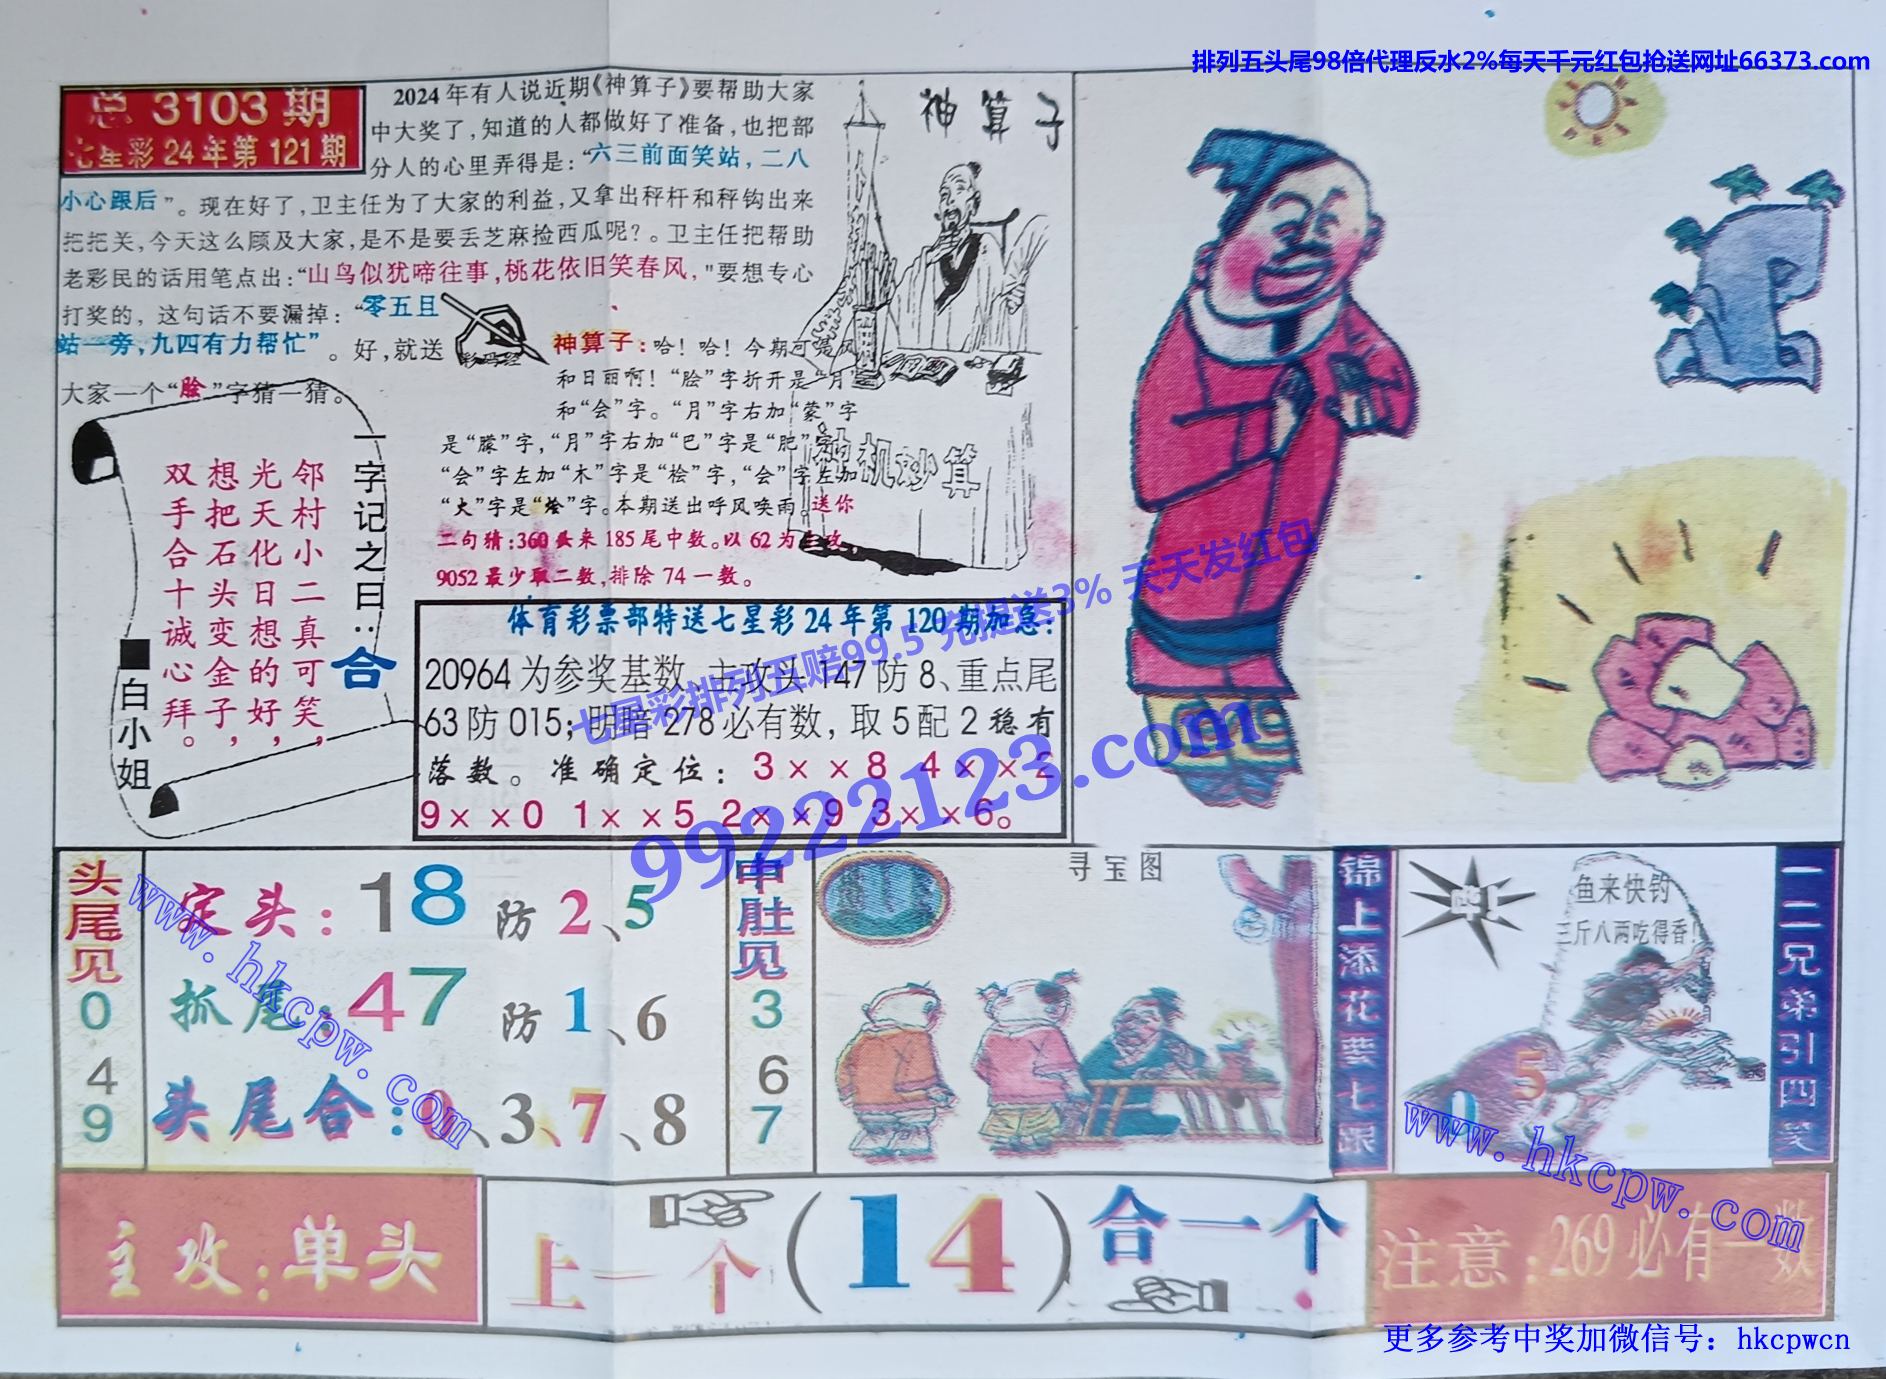 排列五头尾98倍代理反水2%每天千元红包抢送网址66373.com
总 3103 期
七星彩 24 年第 121 期
2024年有人说近期《神算子》要帮助大家
中大奖了,知道的人都做好了准备,也把部
分人的心里弄得是:“六三前面笑站,二八
小心跟后”。现在好了,卫主任为了大家的利益,又拿出秤杆和秤钩出来
把把关,今天这么顾及大家,是不是要丢芝麻捡西瓜呢?。卫主任把帮助
老彩民的话用笔点出:“山鸟似犹啼往事,桃花依旧笑春风,"要想专心
打奖的, 这句话不要漏掉:“零五且
站一旁,九四有力帮忙”。好,就送
大家一个“脍”字猜一猜。
神算子
神算子:哈!哈!今期可是风
和日丽啊!“脍”字折开是“月”
和“会”字。“月”字右加“蒙”字
是“朦”字,“月”字右加“巴”字是“肥”字
“会”字左加“木”字是“桧”字,“会”字左加
“火”字是“烩”字。本期送出呼风唤雨。送你
二句猜:360头来185尾中数。以62为主攻,
9052最少取二数,排除74一数。
神机妙算
一字记之曰:合
邻村小二真可笑,
光天化日想的好,
想把石头变金子,
双手合十诚心拜。
■白小姐
体育彩票部特送七星彩24年第120期加急:
20964为参奖基数 主攻头147防8、重点尾
63防015;明暗278必有数,取5配2稳有
落数。准确定位:3××8 4××2
9××0 1××5 2××9 3××6。
七星彩排列五赔99.5 兑提送3% 天天发红包
99222123.com
头尾见
0
4
9
定头:18 防 2、5
抓尾:47 防 1、6
头尾合:0、3、7、8
www.hkcpw.com
中肚见
3
6
7
寻宝图
锦上添花要七跟
鱼来快钓
三斤八两吃得香!
0 5
www.hkcpw.com
一二兄弟引四笑
主攻:单头
上一个(14)合一个
注意:269必有一数
更多参考中奖加微信号:hkcpwcn